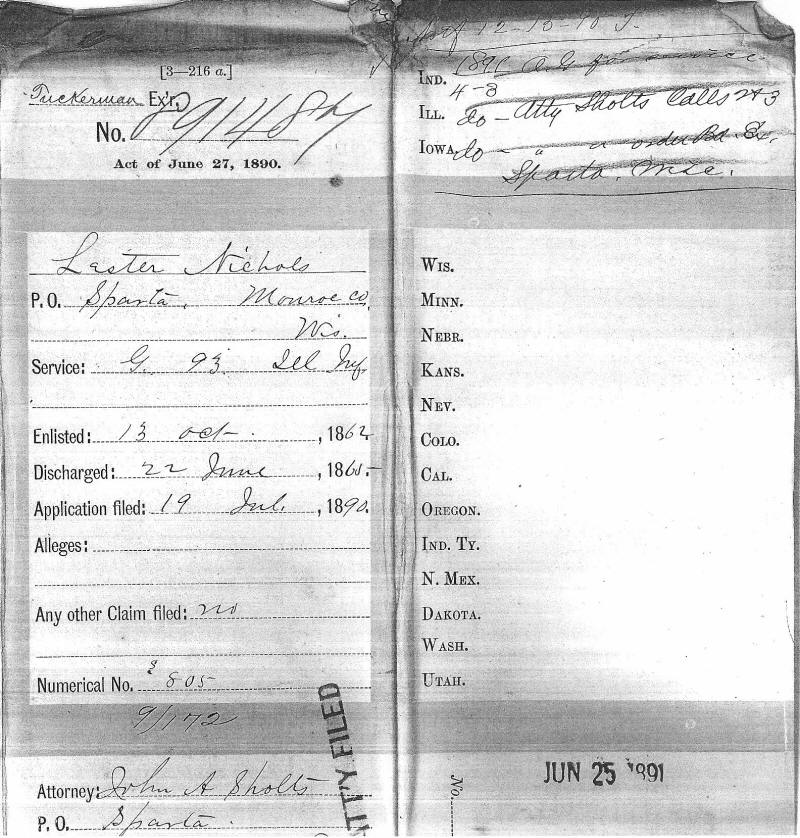 [3—216 a.]
Tuckerman Ex'r.
No. 891487
Act of June 27, 1890.
Lester Nichols
P. O. Sparta, Monroe co,
Wis.
Service: G. 93 Ill Inf
Enlisted: 13 oct , 1862
Discharged: 22 June , 1865
Application filed: 19 Jul. , 1890.
Alleges:
Any other Claim filed: no
Numerical No. 805
9/172
Attorney: John A Sholts
P. O. Sparta
ATT'Y FILED
12-10-90
IND. 1890 for
4-3
ILL. do - Atty Sholts Calls
IOWA. do - " order Bd Ex.
Sparta. Wisc.
WIS.
MINN.
NEBR.
KANS.
NEV.
COLO.
CAL.
OREGON.
IND. TY.
N. MEX.
DAKOTA.
WASH.
UTAH.
No.
JUN 25 1891